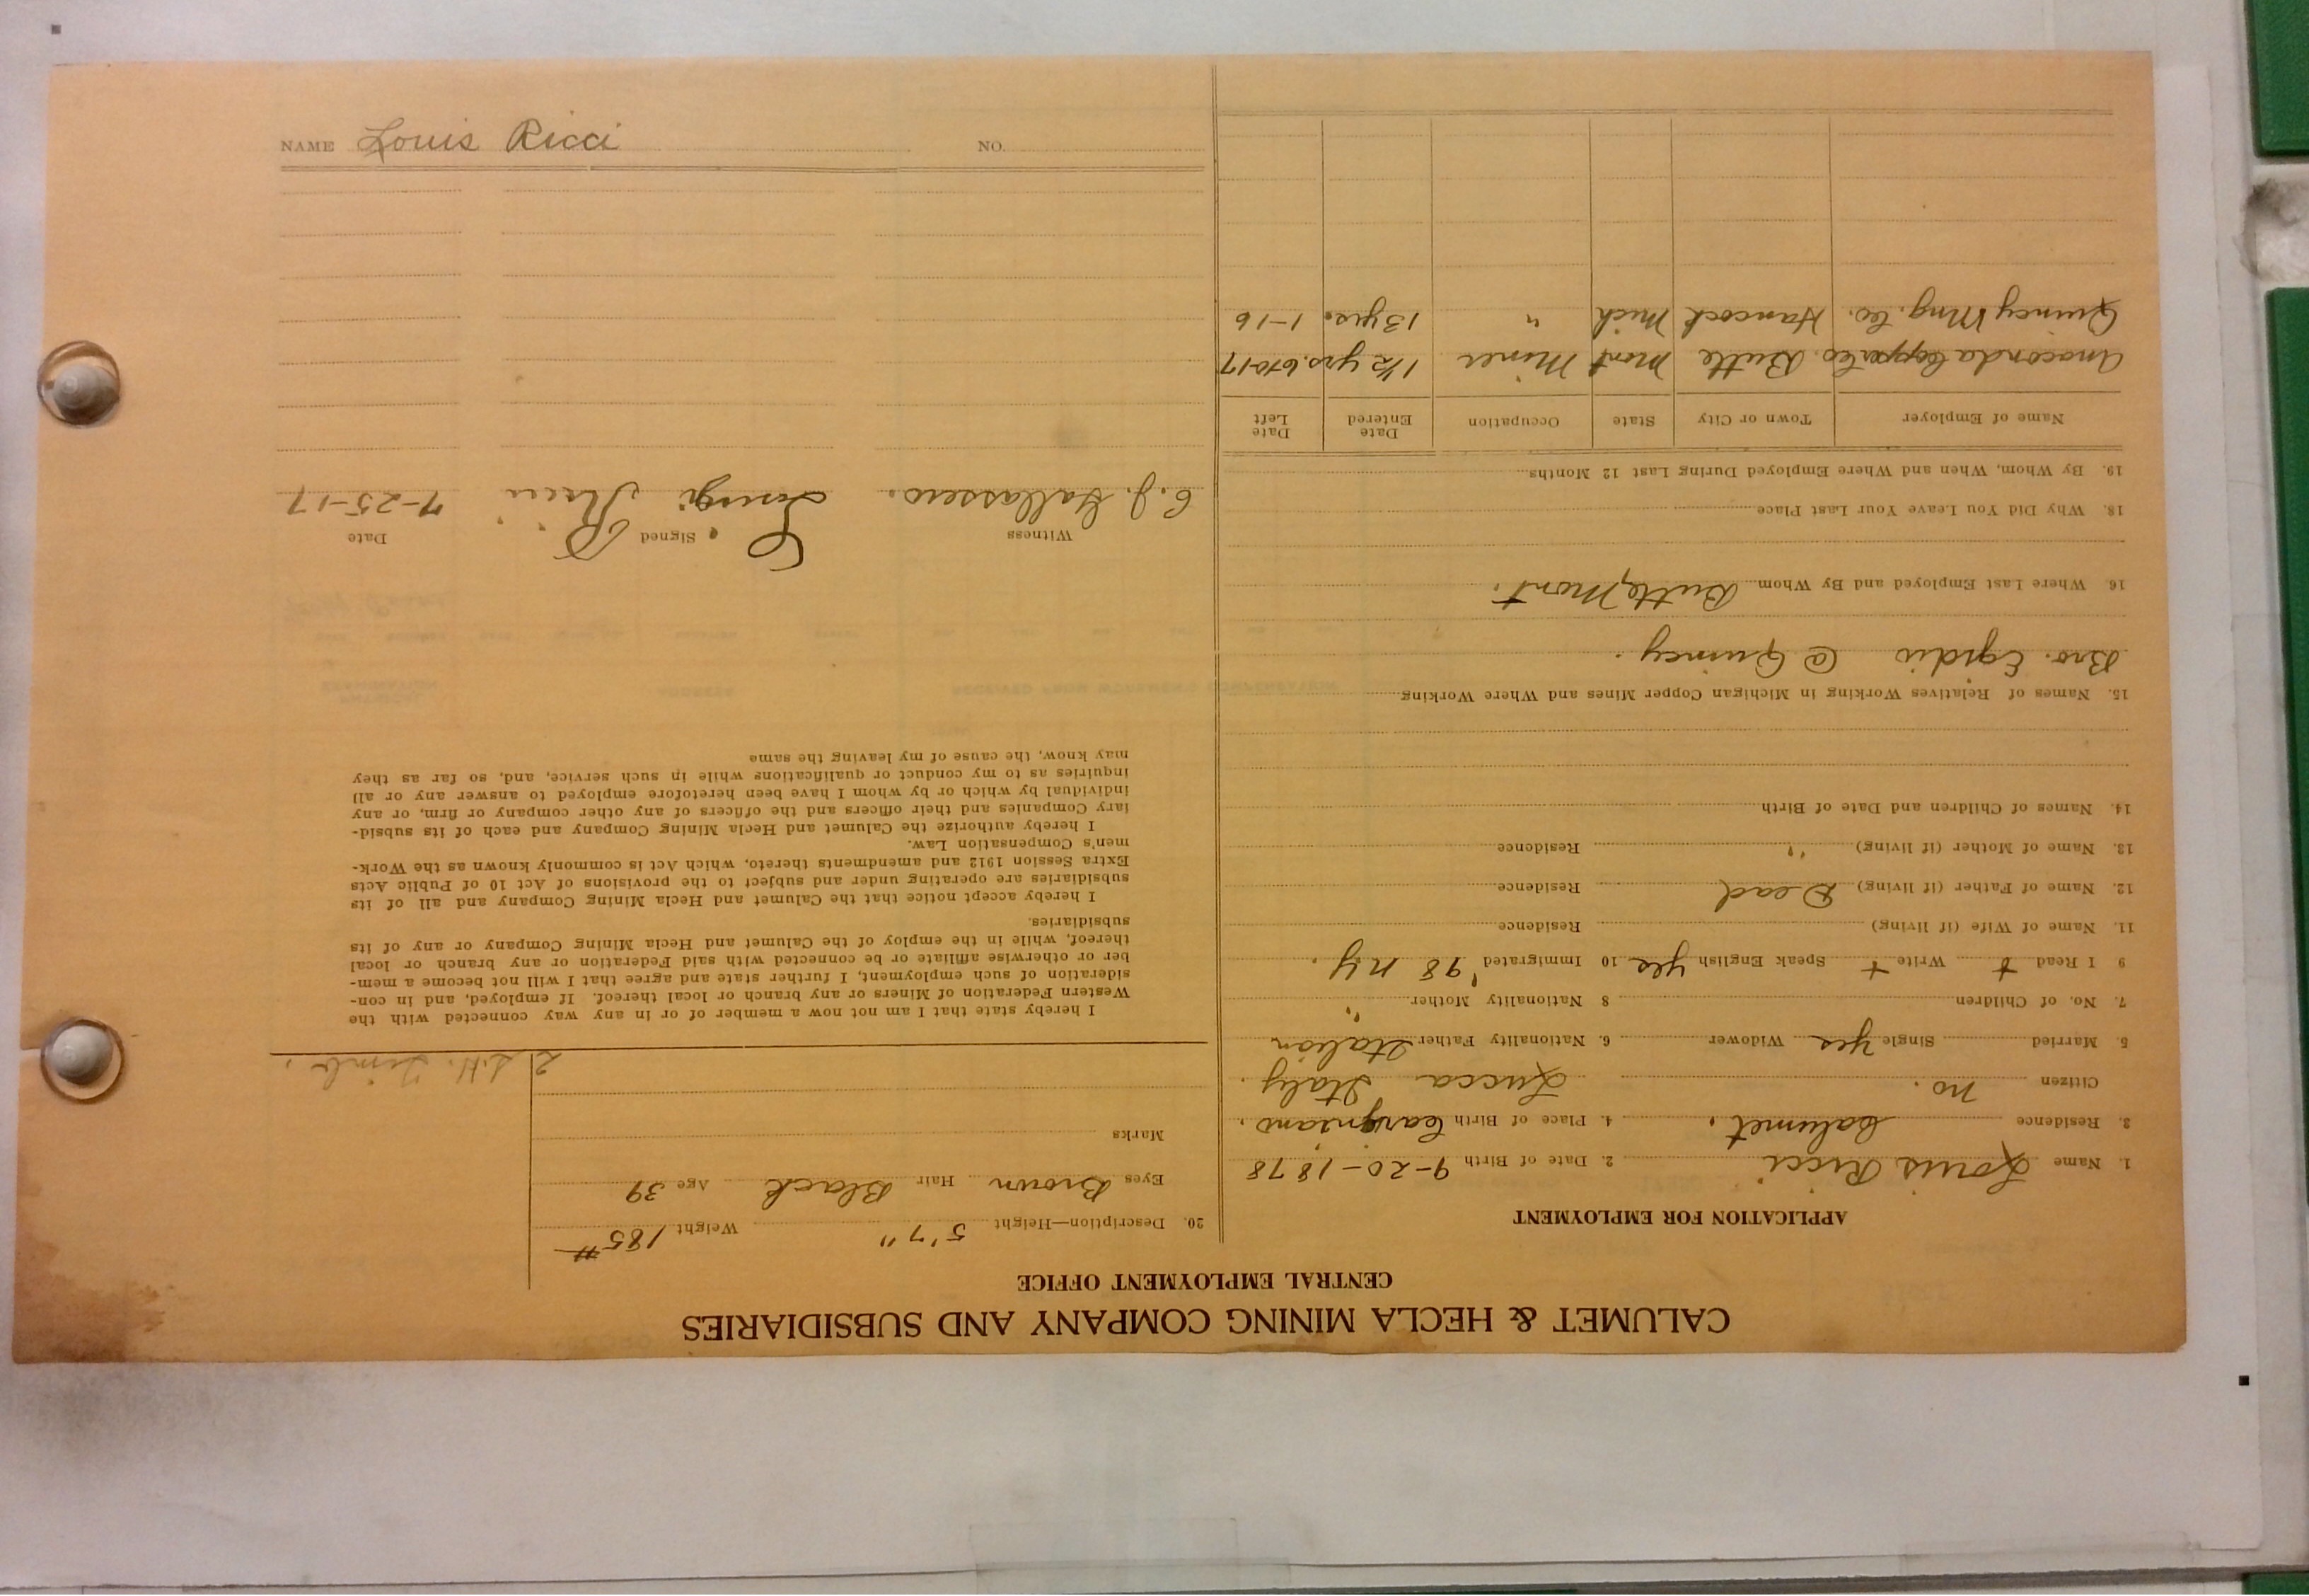 CALUMET & HECLA MINING COMPANY AND SUBSIDIARIES
CENTRAL EMPLOYMENT OFFICE
APPLICATION FOR EMPLOYMENT
1. Name Louis Ricci 2. Date of Birth 9-20-1878
3. Residence Calumet. 4. Place of Birth
Citizen no. Lucca Italy.
5. Married Single yes Widower 6. Nationality Father Italian
7. No. of Children 8 Nationality Mother "
9 I Read + Write + Speak English yes 10 Immigrated '98 N.Y.
11. Name of Wife (if living) Residence
12. Name of Father (if living) Dead Residence
13. Name of Mother (if living) " Residence
14. Names of Children and Date of Birth
15. Names of Relatives Working in Michigan Copper Mines and Where Working
Bro. Egidio @ Quincy.
16. Where Last Employed and By Whom Butte, Mont.
18. Why Did You Leave Your Last Place
19. By Whom, When and Where Employed During Last 12 Months
Name of Employer Town or City State Occupation Date Entered Date Left
Anaconda Copper Co. Butte Mont Miner 1 1/2 yrs. 6-10-17
Quincy Mng. Co. Hancock Mich " 13 yrs. 1-16
20. Description—Height 5'7" Weight 185#
Eyes Brown Hair Black Age 39
Marks
I hereby state that I am not now a member of or in any way connected with the
Western Federation of Miners or any branch or local thereof. If employed, and in con-
sideration of such employment, I further state and agree that I will not become a mem-
ber or otherwise affiliate or be connected with said Federation or any branch or local
thereof, while in the employ of the Calumet and Hecla Mining Company or any of its
subsidiaries.
I hereby accept notice that the Calumet and Hecla Mining Company and all of its
subsidiaries are operating under and subject to the provisions of Act 10 of Public Acts
Extra Session 1912 and amendments thereto, which Act is commonly known as the Work-
men's Compensation Law.
I hereby authorize the Calumet and Hecla Mining Company and each of its subsid-
iary Companies and their officers and the officers of any other company or firm, or any
individual by which or by whom I have been heretofore employed to answer any or all
inquiries as to my conduct or qualifications while in such service, and, so far as they
may know, the cause of my leaving the same
Witness Signed Date
Luigi Ricci 7-25-17
NAME Louis Ricci NO.